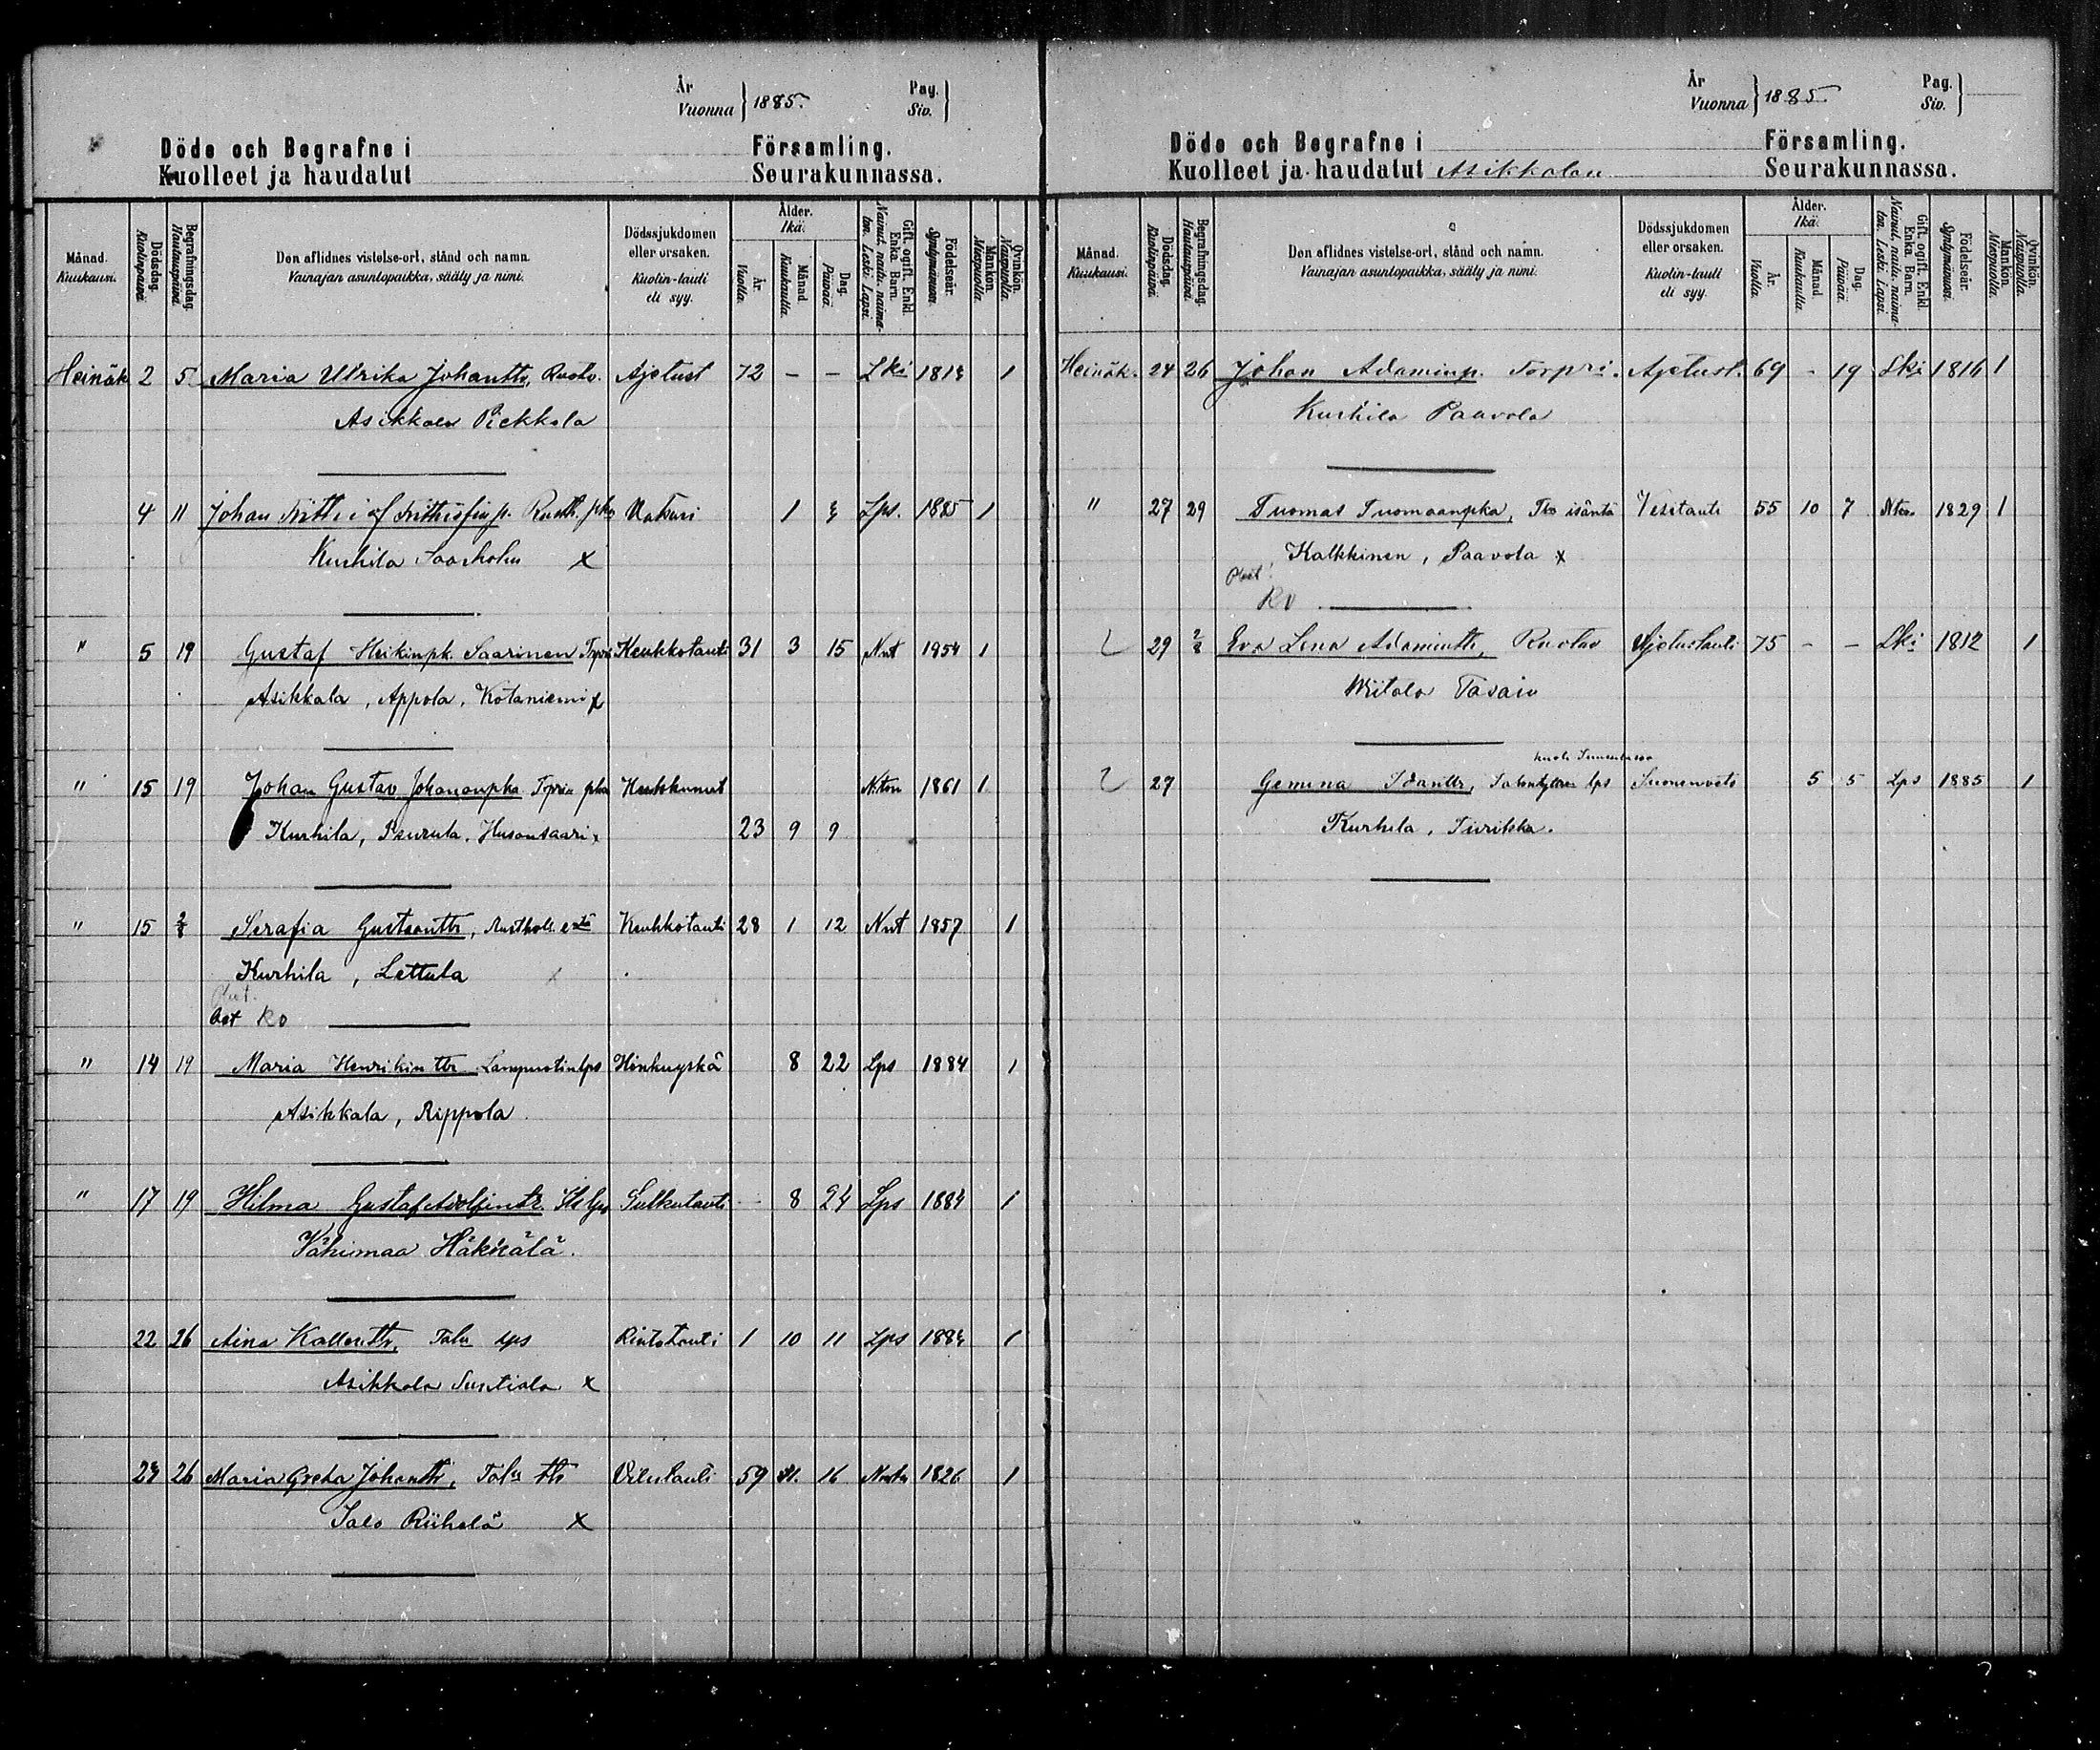 År
Vuonna } 1885. Pag.
Siv. }
Döde och Begrafne i Församling.
Kuolleet ja haudatut Seurakunnassa.
Månad. Kuukausi.
Dödsdag. Kuolinpäivä.
Begrafningsdag. Hautauspäivä.
Den aflidnes vistelse-ort, stånd och namn.
Vainajan asuntopaikka, sääty ja nimi.
Dödssjukdomen eller orsaken.
Kuolin-tauti eli syy.
Ålder. Ikä.
År. Vuotta.
Månad. Kuukautta.
Dag. Päivää.
Gift, ogift. Enkl. Enka. Barn.
Nainut, naitu, naimaton. Leski. Lapsi.
Födelseår. Syntymävuosi.
Mankön. Miespuolia.
Qvinkön. Naispuolia.
Heinäk 2 5 Maria Ulrika Johantr, Ruotv. Ajetust 72 – – Lki 1813 1
Asikkala Pekkola
4 11 Johan Frithiof Frithiofinp. Rusth. pka 1 3 Lps. 1885 1
Kurhila Saarholm x
" 5 19 Gustaf Heikinpk. Saarinen Keuhkotauti 31 3 15 Nut 1854 1
Asikkala, Appola, Kotaniemi x
" 15 19 Johan Gustav Johananpka Torpin pka Nton 1861 1
Kurhila, Peurula, 23 9 9
" 15 2/8 Serafia Gustaantr, Rusthol. Keuhkotauti 28 1 12 Nut 1857 1
Kurhila, Lettula
RO
" 14 19 Maria Henrikintr Lampuotin lps Hinkuyskä 8 22 Lps 1884 1
Asikkala, Rippola.
" 17 19 Hilma Gustaf Adolfintr. Its lps Sulkutauti – 8 24 Lps 1884 1
Vähimaa Häkkälä.
22 26 Aina Kallentr, Talu lps Rintatauti 1 10 11 Lps 1883 1
Asikkala Suntiala x
23 26 Maria Greta Johantr, Talu Vilutauti 59 16 1826 1
Salo Riihelä x
År
Vuonna } 1885. Pag.
Siv. }
Döde och Begrafne i Församling.
Kuolleet ja haudatut Asikkalan Seurakunnassa.
Månad. Kuukausi.
Dödsdag. Kuolinpäivä.
Begrafningsdag. Hautauspäivä.
Den aflidnes vistelse-ort, stånd och namn.
Vainajan asuntopaikka, sääty ja nimi.
Dödssjukdomen eller orsaken.
Kuolin-tauti eli syy.
Ålder. Ikä.
År. Vuotta.
Månad. Kuukautta.
Dag. Päivää.
Gift, ogift. Enkl. Enka. Barn.
Nainut, naitu, naimaton. Leski. Lapsi.
Födelseår. Syntymävuosi.
Mankön. Miespuolia.
Qvinkön. Naispuolia.
Heinäk. 24 26 Johan Adaminp. Torpri. Ajetust. 69 - 19 Lki 1816 1
Kurhila Paavola
" 27 29 Tuomas Tuomaanpka, Tln isäntä Vesitauti 55 10 7 Ntu. 1829 1
Kalkkinen, Paavola x
RO
29 2/8 Eva Lena Adamintr, Ruotlv Ajetustauti 75 - - Lki 1812 1
Viitala Tasaiv
27 Gemina Idantr, lps 5 5 Lps 1885 1
Kurhila, Tiiriska.